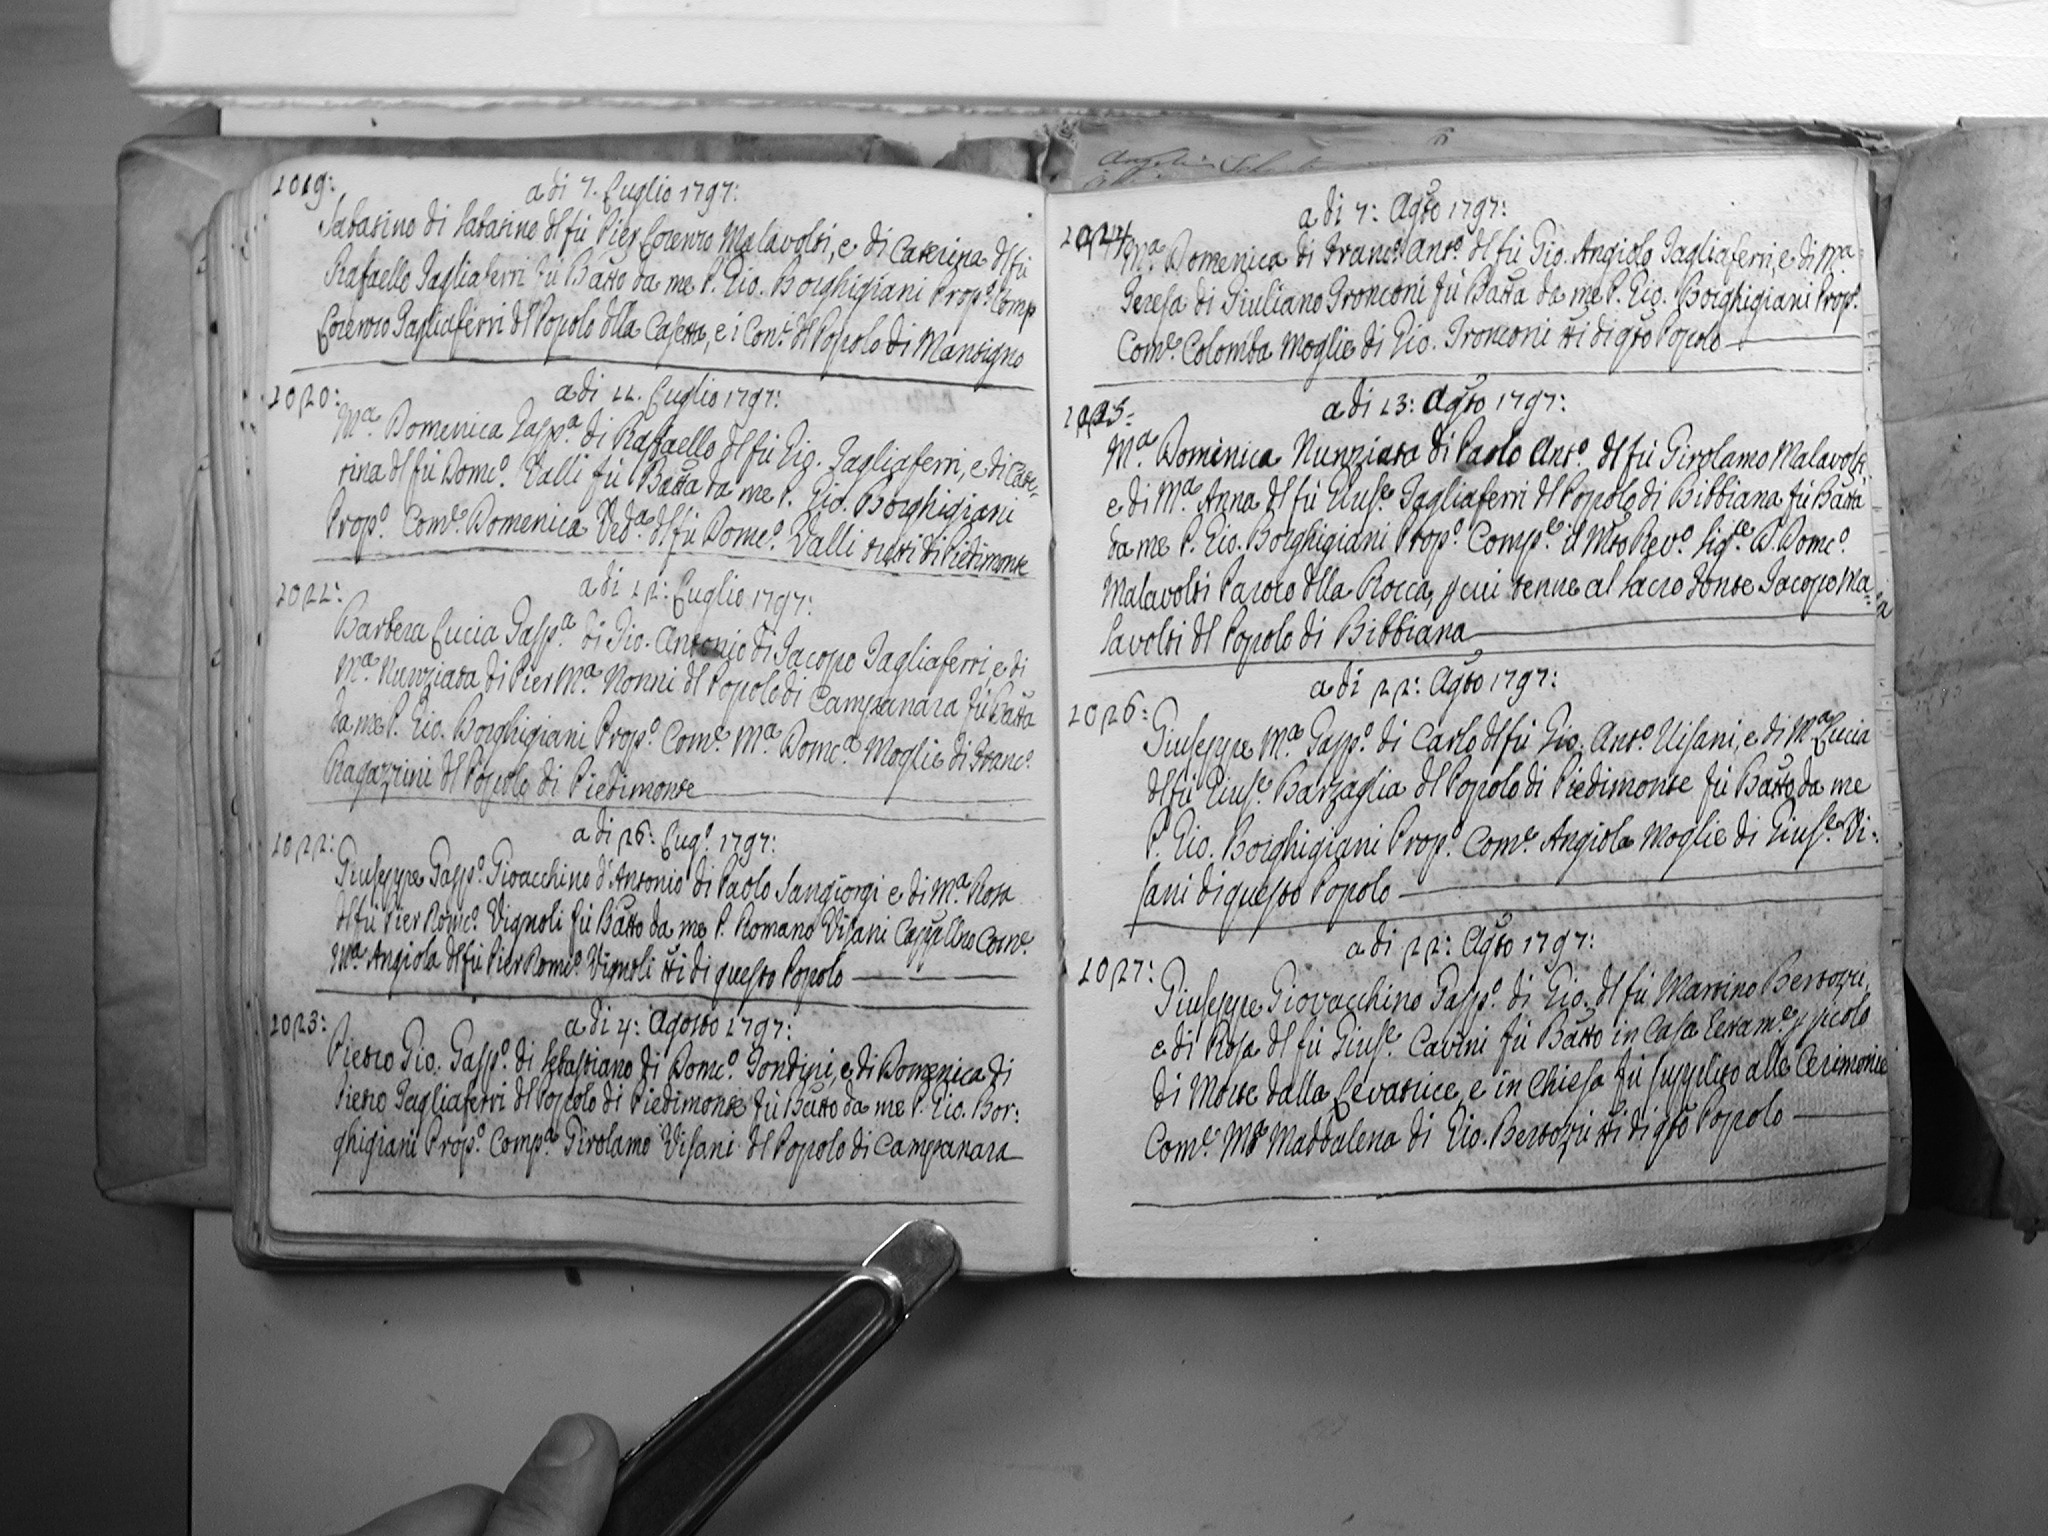 2019:
a di 7. Luglio 1797:
Sabatino di Sabatino dl fù Pier Lorenzo Malavolti, e di Caterina dl fù
Raffaello Tagliaferri fù Batto da me P. Gio. Borghigiani Propo. Comp
Lorenzo Tagliaferri dl Popolo dlla Casetta, e i Coni. dl Popolo di Mantigno
2020:
a di 11. Luglio 1797:
Ma. Domenica Gaspa. di Raffaello dl fù Gio. Tagliaferri, e di Cate-
rina dl fù Domco. Valli fù Batta da me P. Gio. Borghigiani
Propo. Come. Domenica Veda. dl fù Domco. Valli tutti di Piedimonte
2021:
a di 12: Luglio 1797:
Barbera Lucia Gaspa. di Gio. Antonio di Jacopo Tagliaferri, e di
Ma. Nunziata di Pier Ma. Nonni dl Popolo di Campanara fù Batta
da me P. Gio. Borghigiani Propo. Come. Ma. Domca. Moglie di Franco.
Ragazzini dl Popolo di Piedimonte
2022:
a di 26: Lugo. 1797:
Giuseppe Gaspo. Giovacchino d'Antonio di Paolo Sangiorgi e di Ma. Rosa
dl fù Pier Domco. Vignoli fù Batto da me P. Romano Visani Capplno Come.
Ma. Angiola dl fù Pier Domco. Vignoli tti di questo Popolo
2023:
a di 4: Agosto 1797:
Pietro Gio. Gaspo. di Sebastiano di Domco. Tondini, e di Domenica di
Pietro Tagliaferri dl Popolo di Piedimonte fù Batto da me P. Gio. Bor:
ghigiani Propo. Compe. Girolamo Visani dl Popolo di Campanara
a di 7: Agto 1797:
2024
Ma. Domenica di Franco. Anto. dl fù Gio. Angiolo Tagliaferri, e di Ma.
Teresa di Giuliano Tronconi fù Batta da me P. Gio. Borghigiani Propo.
Come. Colomba Moglie di Gio. Tronconi tti di qto Popolo
2025:
a di 13: Agto 1797:
Ma. Domenica Nunziata di Paolo Anto. dl fù Girolamo Malavolti
e di Ma. Anna dl fù Giuse. Tagliaferri dl Popolo di Bibbiana fù Batta
da me P. Gio. Borghigiani Propo. Compe. il Mto Revo. Sige. D. Domco.
Malavolti Paroco dlla Rocca, p cui tenne al Sacro Fonte Jacopo Ma:
lavolti dl Popolo di Bibbiana
a di 22: Agto 1797:
2026:
Giuseppe Ma. Gaspo. di Carlo dl fù Gio. Anto. Visani, e di Ma. Lucia
dl fù Giuse. Barzaglia dl Popolo di Piedimonte fù Batto da me
P. Gio. Borghigiani Propo. Come. Angiola Moglie di Giuse. Vi:
sani di questo Popolo
a di 22: Agto 1797:
2027:
Giuseppe Giovacchino Gaspo. di Gio. dl fù Martino Bertozzi,
e di Rosa dl fù Giuse. Cavini fù Batto in Casa p picolo
di Morte dalla Levatrice, e in Chiesa fù supplito alle Cerimonie
Come. Ma Maddalena di Gio. Bertozzi tti di qto Popolo